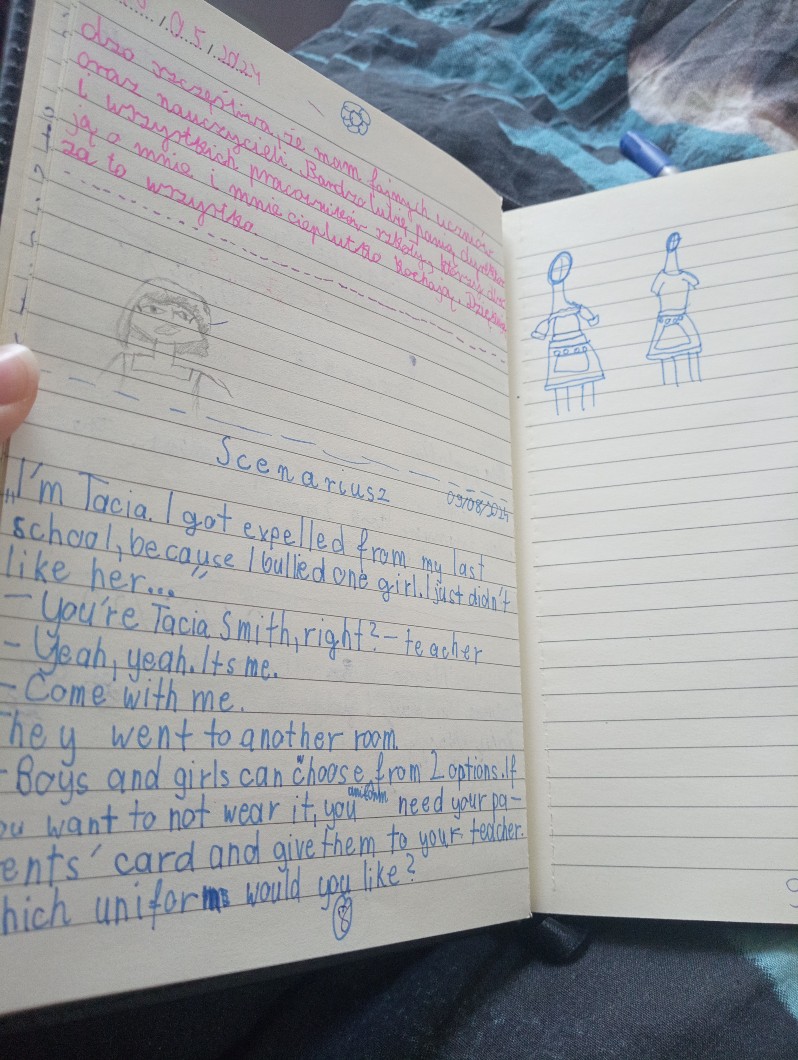 .05.2024
dzo szczęśliwa, że mam fajnych uczniów
oraz nauczycieli. Bardzo lubię panią
i wszystkich pracowników szkoły, którzy
ją o mnie i mnie cieplutko kochają. Dziękuję
za to wszystko.
Scenariusz
09/08/2024
"I'm Tacia. I got expelled from my last
school, because I bullied one girl. I just didn't
like her..."
- You're Tacia Smith, right? - teacher
- Yeah, yeah. Its me.
- Come with me.
They went to another room.
- Boys and girls can choose from 2 options. If
ou want to not wear it, you uniform need your pa-
ents' card and give them to your teacher.
hich uniform would you like?
8
9